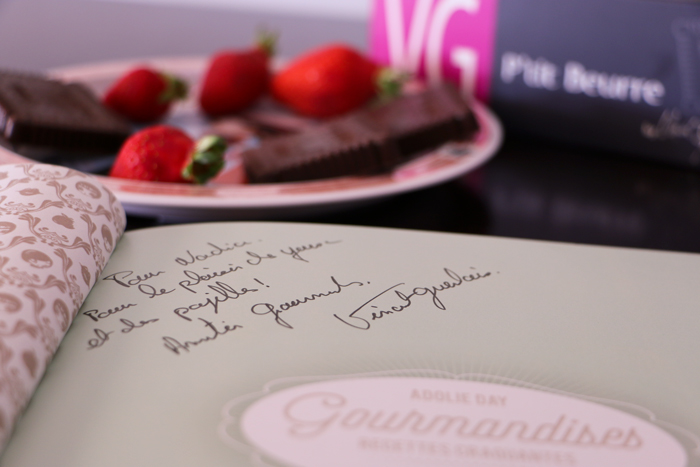 VG
P'tit Beurre
Pour Nadia.
Pour le plaisir des yeux
et des papilles!
Amitiés gourmandes.
Vincent Guerlais.
ADOLIE DAY
Gourmandises
RECETTES CRAQUANTES